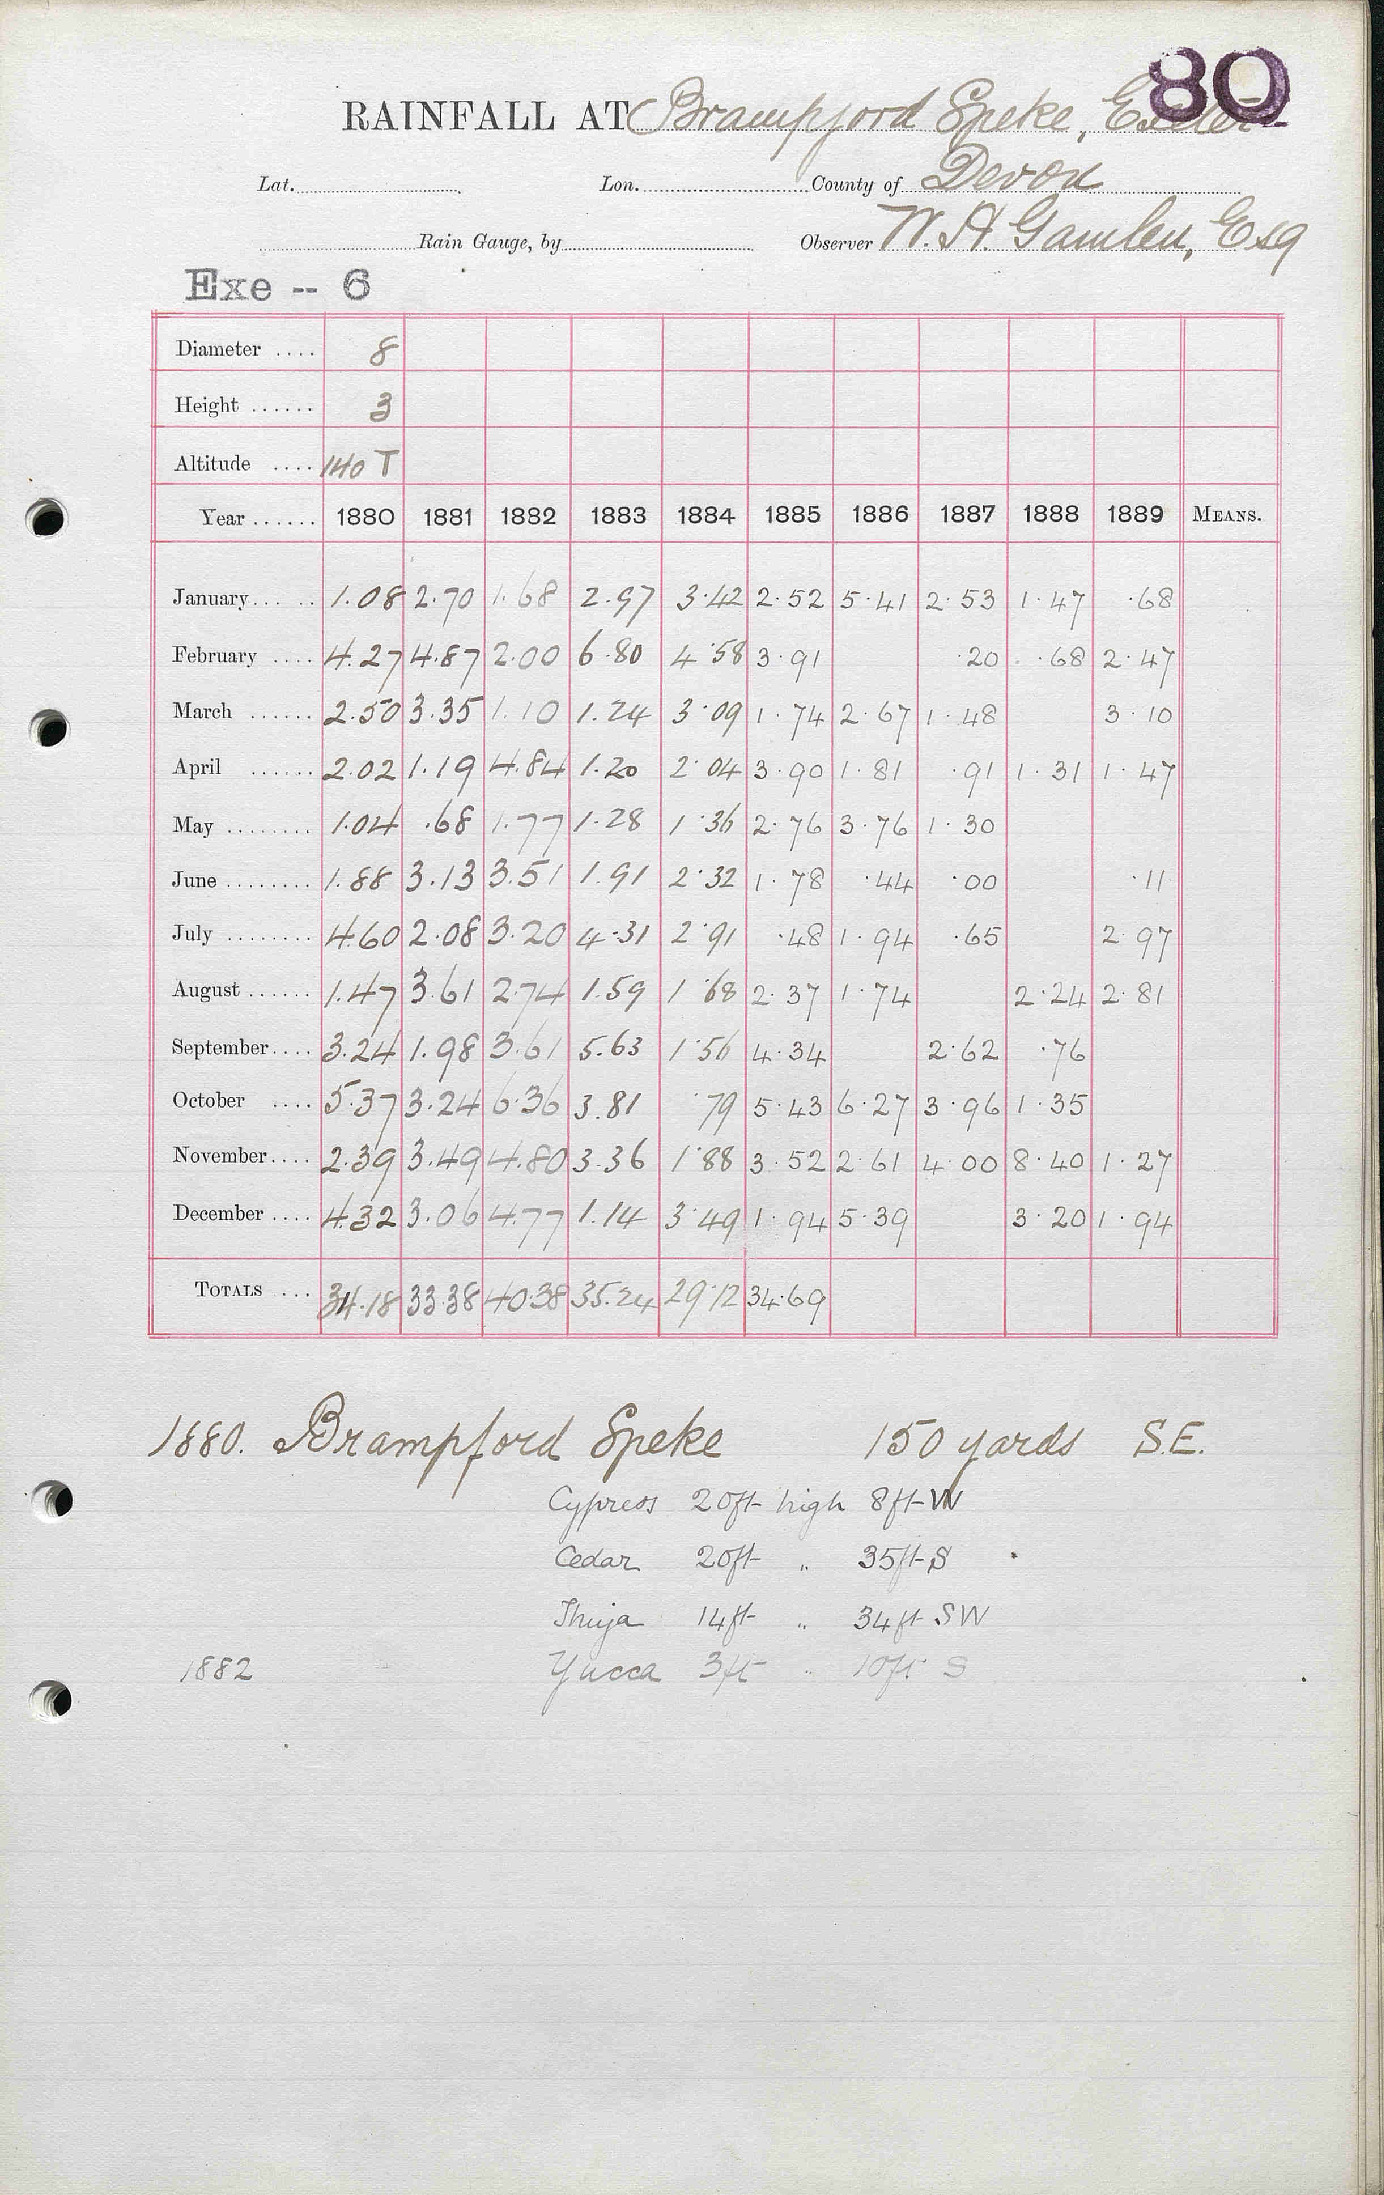 80
RAINFALL AT Brampford Speke, Exeter
Lat. Lon. County of Devon
Rain Gauge, by Observer W. H. Gamlen, Esq
Exe -- 6
Diameter .... 8
Height ...... 3
Altitude .... 140 T
Year ...... 1880 1881 1882 1883 1884 1885 1886 1887 1888 1889 MEANS.
January...... 1.08 2.70 1.68 2.97 3.42 2.52 5.41 2.53 1.47 .68
February .... 4.27 4.87 2.00 6.80 4.58 3.91 .20 .68 2.47
March ...... 2.50 3.35 1.10 1.24 3.09 1.74 2.67 1.48 3.10
April ...... 2.02 1.19 4.84 1.20 2.04 3.90 1.81 .91 1.31 1.47
May ........ 1.04 .68 1.77 1.28 1.36 2.76 3.76 1.30
June ........ 1.88 3.13 3.51 1.91 2.32 1.78 .44 .00 .11
July ........ 4.60 2.08 3.20 4.31 2.91 .48 1.94 .65 2.97
August ...... 1.47 3.61 2.74 1.59 1.68 2.37 1.74 2.24 2.81
September.... 3.24 1.98 3.61 5.63 1.56 4.34 2.62 .76
October .... 5.37 3.24 6.36 3.81 .79 5.43 6.27 3.96 1.35
November.... 2.39 3.49 4.80 3.36 1.88 3.52 2.61 4.00 8.40 1.27
December .... 4.32 3.06 4.77 1.14 3.49 1.94 5.39 3.20 1.94
TOTALS ... 34.18 33.38 40.38 35.24 29.12 34.69
1880. Brampford Speke 150 yards S.E.
Cypress 20ft high 8ft W
Cedar 20ft " 35ft S
Thuja 14ft " 34ft SW
1882 Yucca 3ft " 10ft S